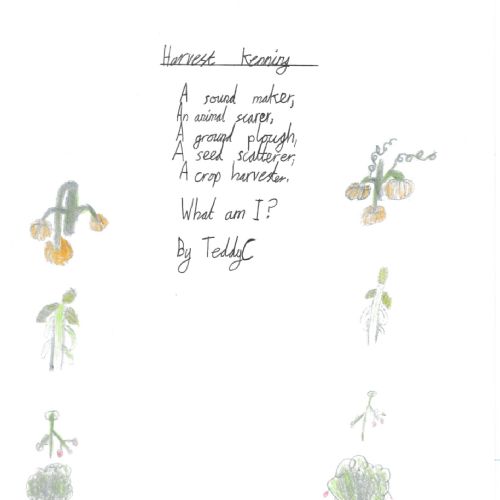 Harvest Kenning
A sound maker,
An animal scarer,
A ground plough,
A seed scatterer,
A crop harvester.
What am I?
By TeddyC